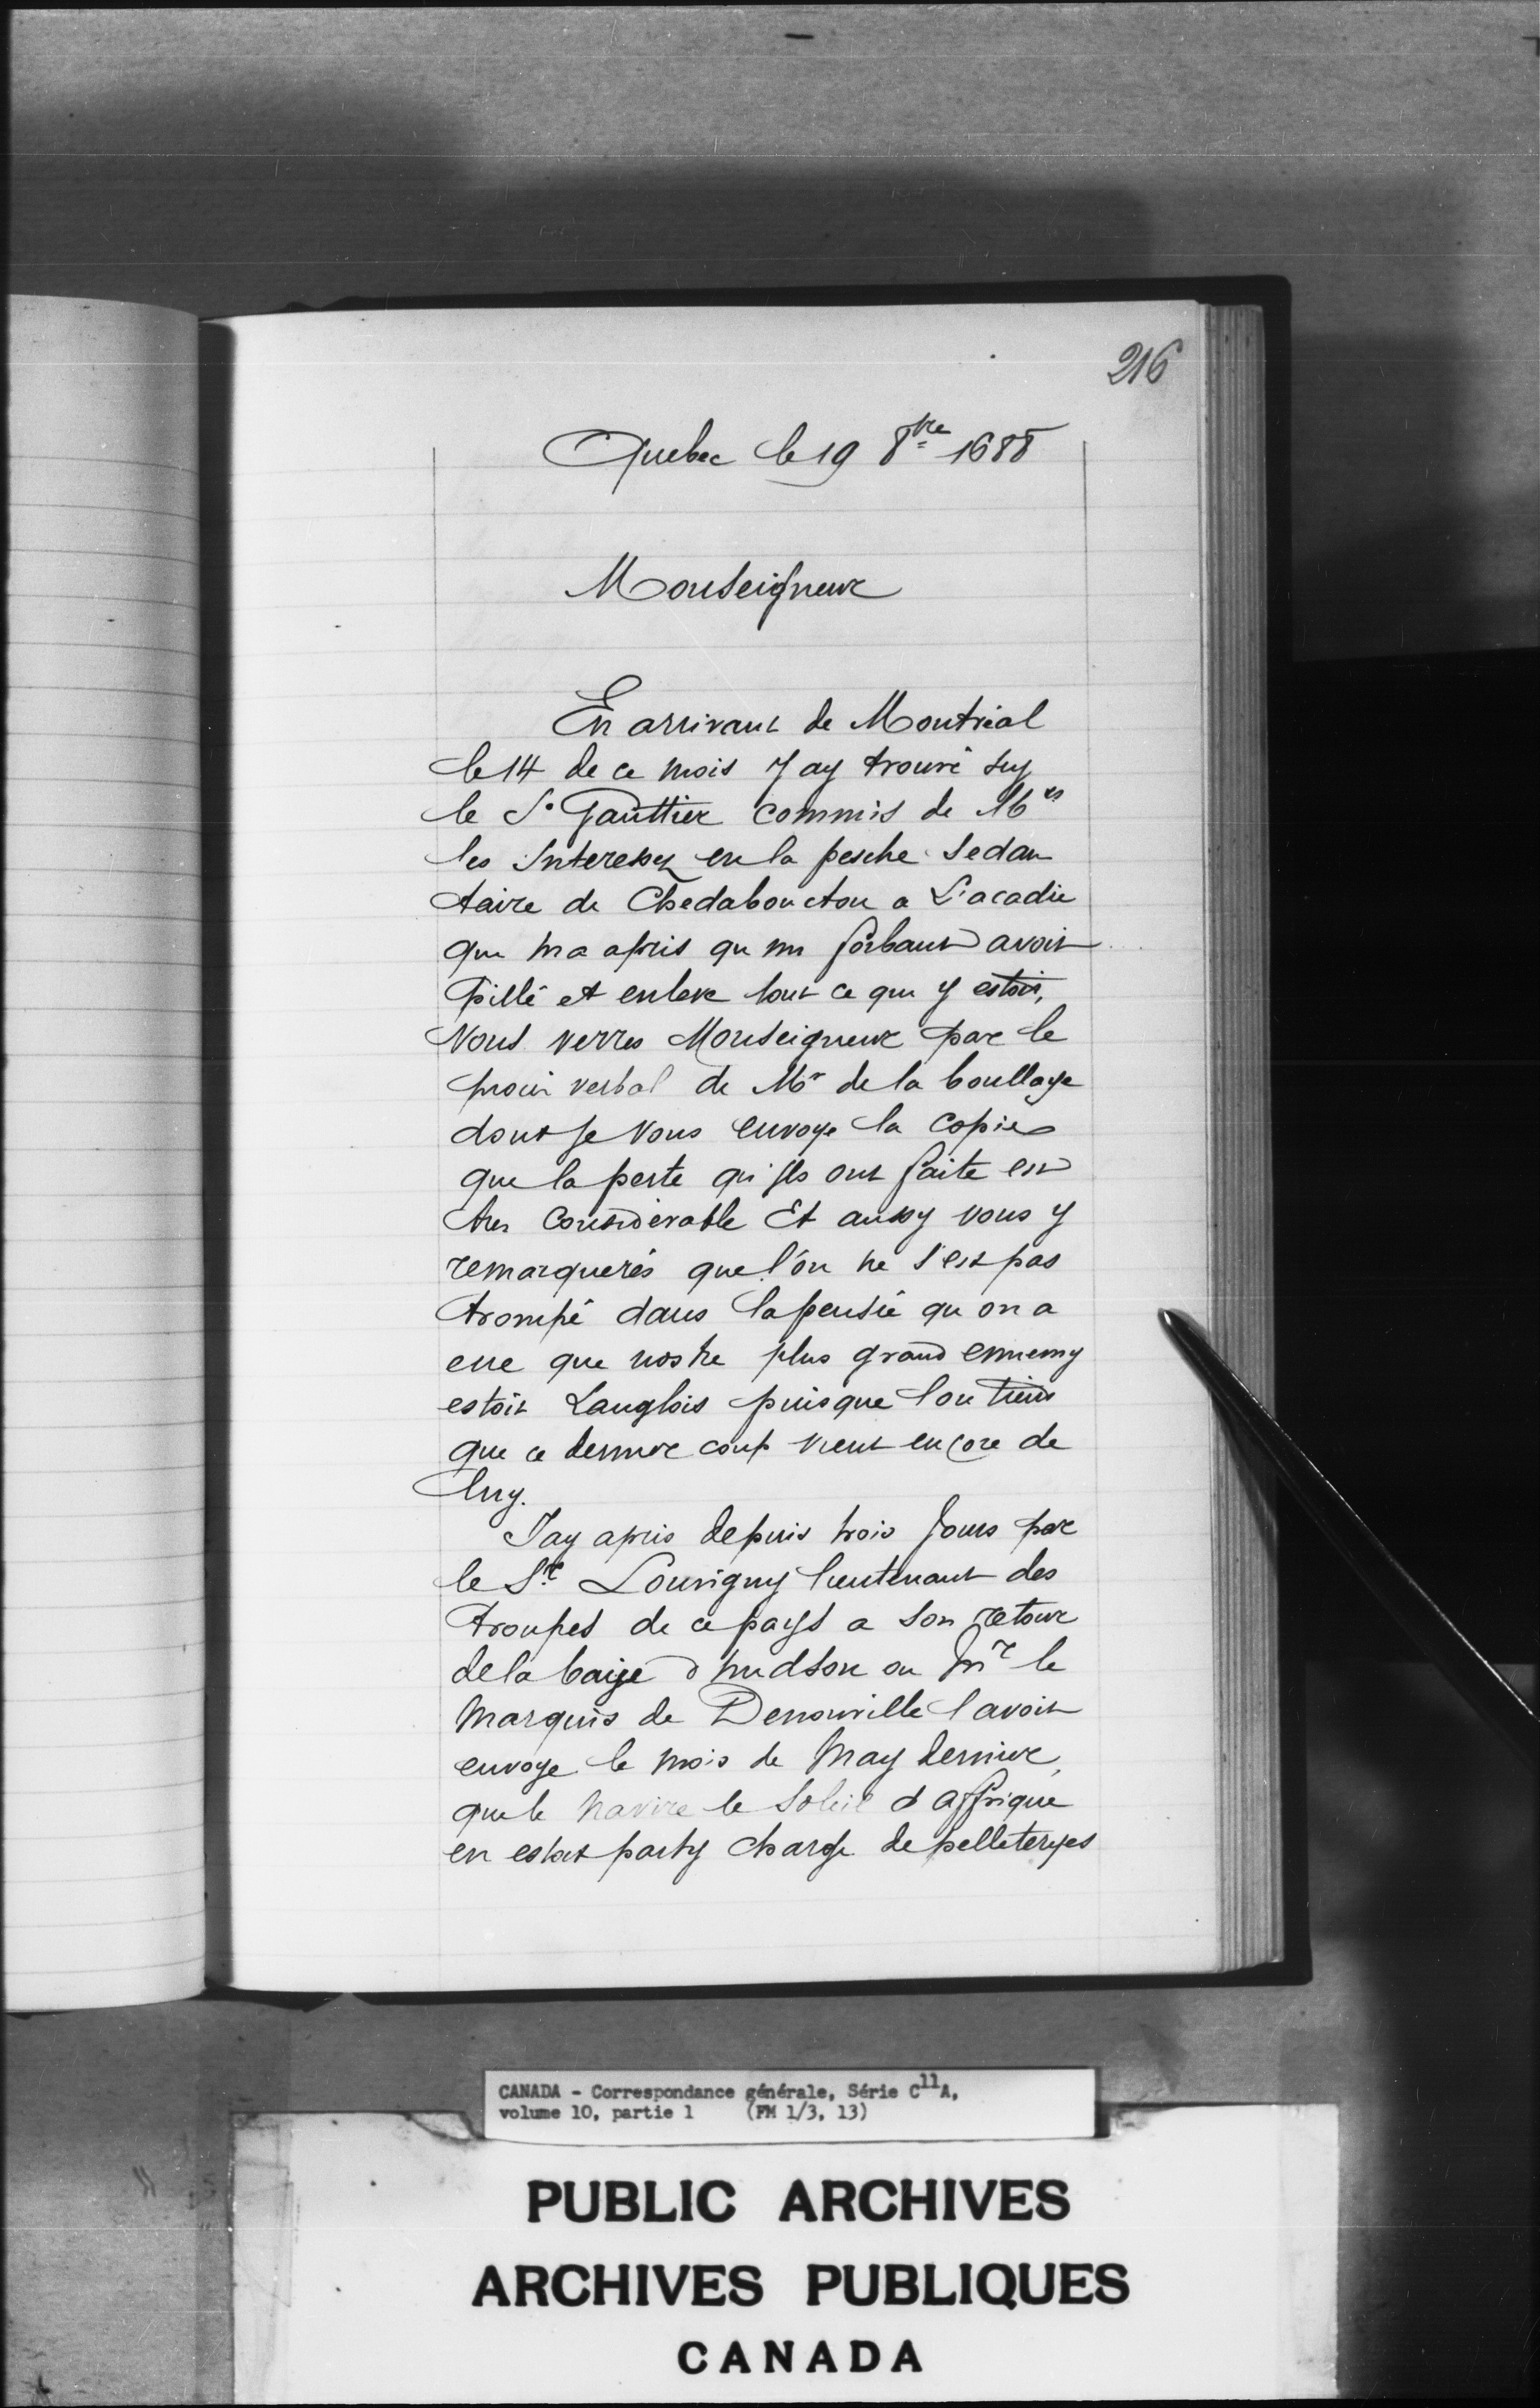 216
Quebec le 19 8bre 1688
Monseigneur
En arrivant de Montréal
le 14 de ce mois J ay trouvé icy
le Sr Gauttier commis de Mrs
les Interessez en la pesche Seden
taire de Chedabouctou a L'acadie
qui m'a apris qu un forbant avoit
pillé et enlevé tout ce qui y estoit,
Vous verres Monseigneur par le
procès verbal de Mr de la boullaye
dont Je vous envoye la copie
que la perte qu'ils ont faite est
tres Considerable Et aussy vous y
remarquerés que l'on ne s'est pas
trompé dans la pensée qu on a
eue que nostre plus grand ennemy
estoit Langlois puisque l'on tient
que ce dernier coup vient encore de
luy.
J'ay apris depuis trois Jours par
le Sr. Louvigny lieutenant des
troupes de ce pays a son retour
de la baije d hudson ou Mr le
Marquis de Denonville l avoit
envoye le mois de May dernier,
que le Navire le Soleil d affrique
en estoit party chargé de pelleteryes
CANADA - Correspondance générale, Série C11A,
volume 10, partie 1 (FM 1/3, 13)
PUBLIC ARCHIVES
ARCHIVES PUBLIQUES
CANADA